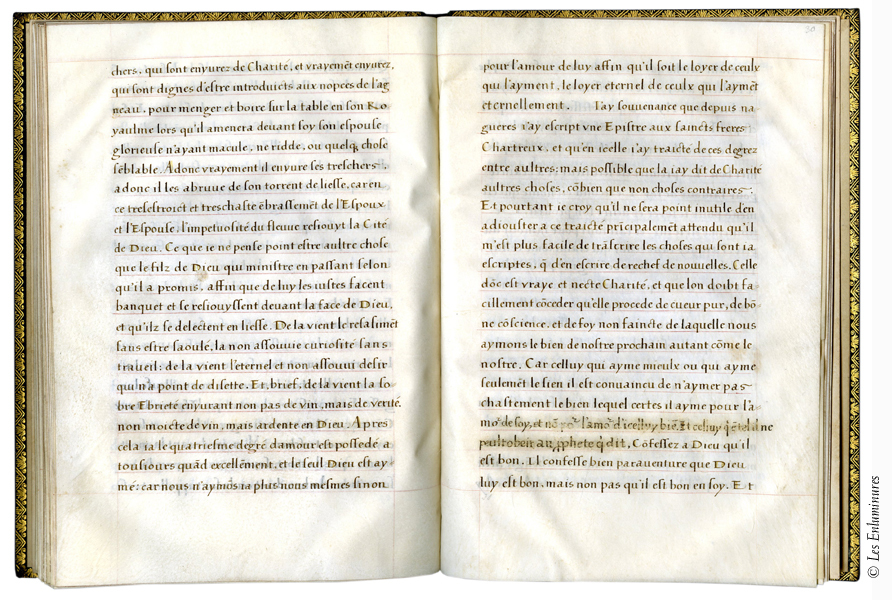 chers, qui sont enyurez de Charité, et vrayemẽt enyurez,
qui sont dignes d'estre introduicts aux nopces de l'ag
neau, pour menger et boire sur la table en son Ro
yaulme lors qu'il amenera deuant soy son espouse
glorieuse n'ayant macule, ne ridde, ou quelq; chose
sẽblable. Adonc vrayement il enyure ses treschers,
adonc il les abruue de son torrent de liesse, car en
ce tresestroict et treschaste ẽbrassemẽt de l'Espoux
et l'Espouse, l'impetuosité du fleuue resiouyt la Cité
de Dieu. Ce que ie ne pense point estre aultre chose
que le filz de Dieu qui ministre en passant selon
qu'il a promis, affin que de luy les iustes facent
banquet et se resiouyssent deuant la face de Dieu,
et qu'ilz se delectent en liesse. De la vient le resasimẽt
sans estre saoulé, la non assouuie curiosité sans
traueil: de la vient l'eternel et non assouui desir
qui n'a point de disette. Et, brief, de la vient la so
bre Ebrieté enyurant non pas de vin, mais de verité,
non moicte de vin, mais ardente en Dieu. Apres
cela ia le quatriesme degré d'amour est possedé a
tousiours quãd excellẽment, et le seul Dieu est ay
mé: car nous n'aymõs ia plus nous mesmes sinon
30
pour l'amour de luy affin qu'il soit le loyer de ceulx
qui l'ayment, le loyer eternel de ceulx qui l'aymẽt
eternellement. I'ay souuenance que depuis na
gueres i'ay escript vne Epistre aux saincts freres
Chartreux, et qu'en icelle i'ay traicté de ces degrez
entre aultres: mais possible que la i'ay dit de Charité
aultres choses, cõbien que non choses contraires:
Et pourtant ie croy qu'il ne sera point inutile d'en
adiouster a ce traicté pricipalemẽt attendu qu'il
m'est plus facile de trãscrire les choses qui sont ia
escriptes, q̃ d'en escrire de rechef de nouuelles. Celle
dõc est vraye et necte Charité, et que lon doibt fa
cillement cõceder qu'elle procede de cueur pur, de bõ
ne cõscience, et de foy non faincte de laquelle nous
aymons le bien de nostre prochain autant cõme le
nostre. Car celluy qui ayme mieulx ou qui ayme
seulemẽt le sien il est conuaincu de n'aymer pas
chastement le bien lequel certes il ayme pour l'a
mor de soy, et nõ por l'amor d'icelluy biẽ. Et celuy
qui dit, Cõfessez a Dieu qu'il
est bon. Il confesse bien parauenture que Dieu
luy est bon, mais non pas qu'il est bon en soy. Et
© Les Enluminures